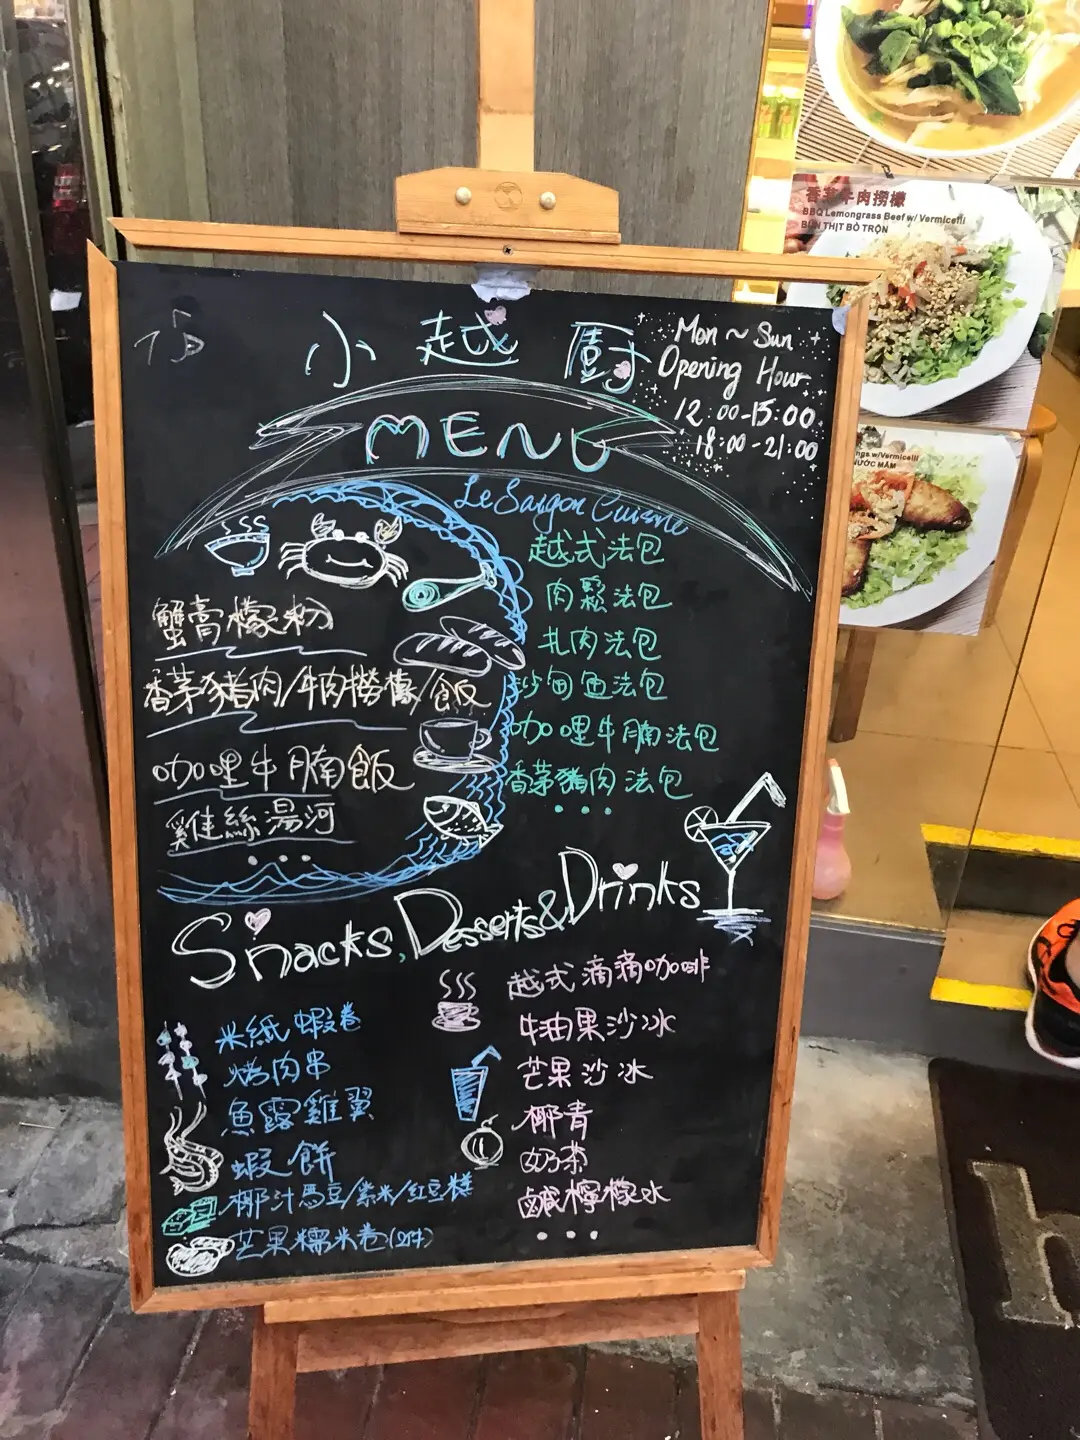 小越廚
Mon ~ Sun
Opening Hour
12:00-15:00
18:00-21:00
MENU
Le Saigon Cuisine
蟹膏檬粉
香茅豬肉/牛肉撈檬/飯
咖哩牛腩飯
雞絲湯河
...
越式法包
肉鬆法包
扎肉法包
沙甸魚法包
咖哩牛腩法包
香茅豬肉法包
...
Snacks, Desserts & Drinks
米紙蝦卷
烤肉串
魚露雞翼
蝦餅
椰汁馬豆/紫米/紅豆糕
芒果糯米卷(2件)
越式滴滴咖啡
牛油果沙冰
芒果沙冰
椰青
奶茶
鹹檸檬水
...
香茅牛肉撈檬
BBQ Lemongrass Beef w/ Vermicelli
BÚN THỊT BÒ TRỘN
w/Vermicelli
NƯỚC MẮM